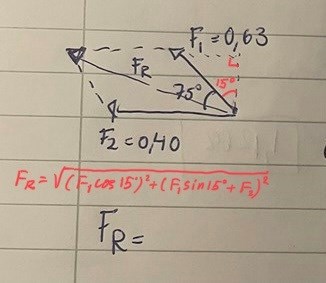 F₁=0,63
F_R
75°
15°
F₂=0,40
F_R=√(F₁cos15°)²+(F₁sin15°+F₂)²
F_R=